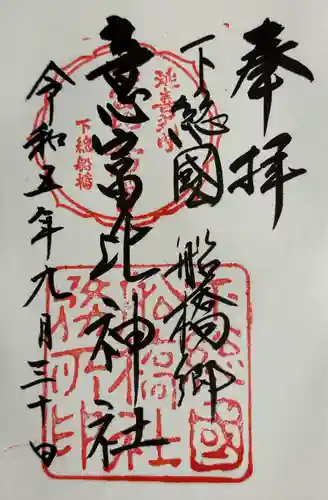 奉拝
下総國 船橋郷
意富比神社
令和五年九月三十日
延喜式内
下総船橋